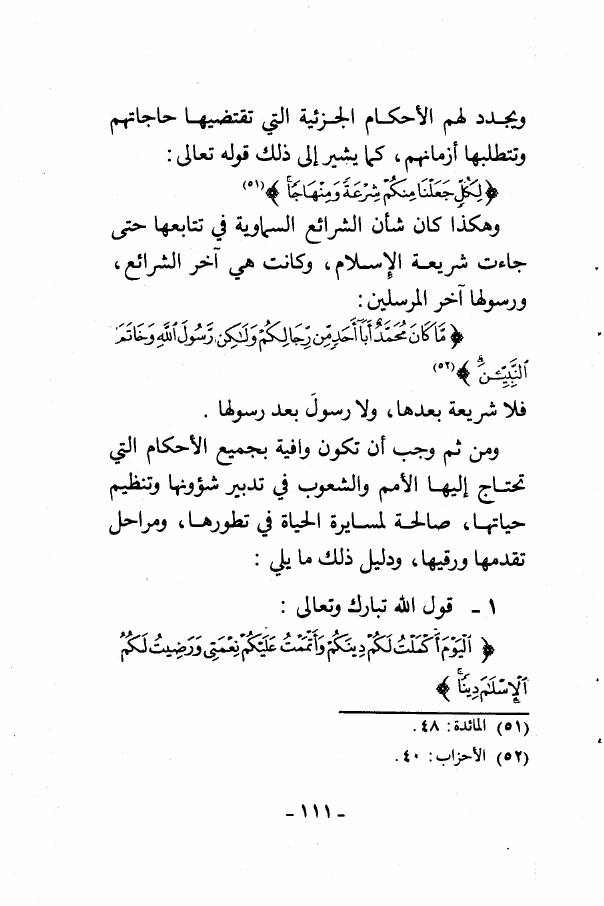 ويجدد لهم الأحكام الجزئية التي تقتضيها حاجاتهم
وتتطلبها أزمانهم، كما يشير إلى ذلك قوله تعالى:
﴿ لِكُلٍّ جَعَلْنَا مِنكُمْ شِرْعَةً وَمِنْهَاجًا ﴾(٥١)
وهكذا كان شأن الشرائع السماوية في تتابعها حتى
جاءت شريعة الإسلام، وكانت هي آخر الشرائع،
ورسولها آخر المرسلين:
﴿ مَّا كَانَ مُحَمَّدٌ أَبَآ أَحَدٍ مِّن رِّجَالِكُمْ وَلَٰكِن رَّسُولَ ٱللَّهِ وَخَاتَمَ
ٱلنَّبِيِّـۧنَ ﴾(٥٢)
فلا شريعة بعدها، ولا رسولَ بعد رسولها .
ومن ثم وجب أن تكون وافية بجميع الأحكام التي
تحتاج إليها الأمم والشعوب في تدبير شؤونها وتنظيم
حياتها، صالحة لمسايرة الحياة في تطورها، ومراحل
تقدمها ورقيها، ودليل ذلك ما يلي :
١ - قول الله تبارك وتعالى :
﴿ ٱلْيَوْمَ أَكْمَلْتُ لَكُمْ دِينَكُمْ وَأَتْمَمْتُ عَلَيْكُمْ نِعْمَتِي وَرَضِيتُ لَكُمُ
ٱلْإِسْلَٰمَ دِينًا ﴾
(٥١) المائدة: ٤٨.
(٥٢) الأحزاب: ٤٠.
- ١١١ -